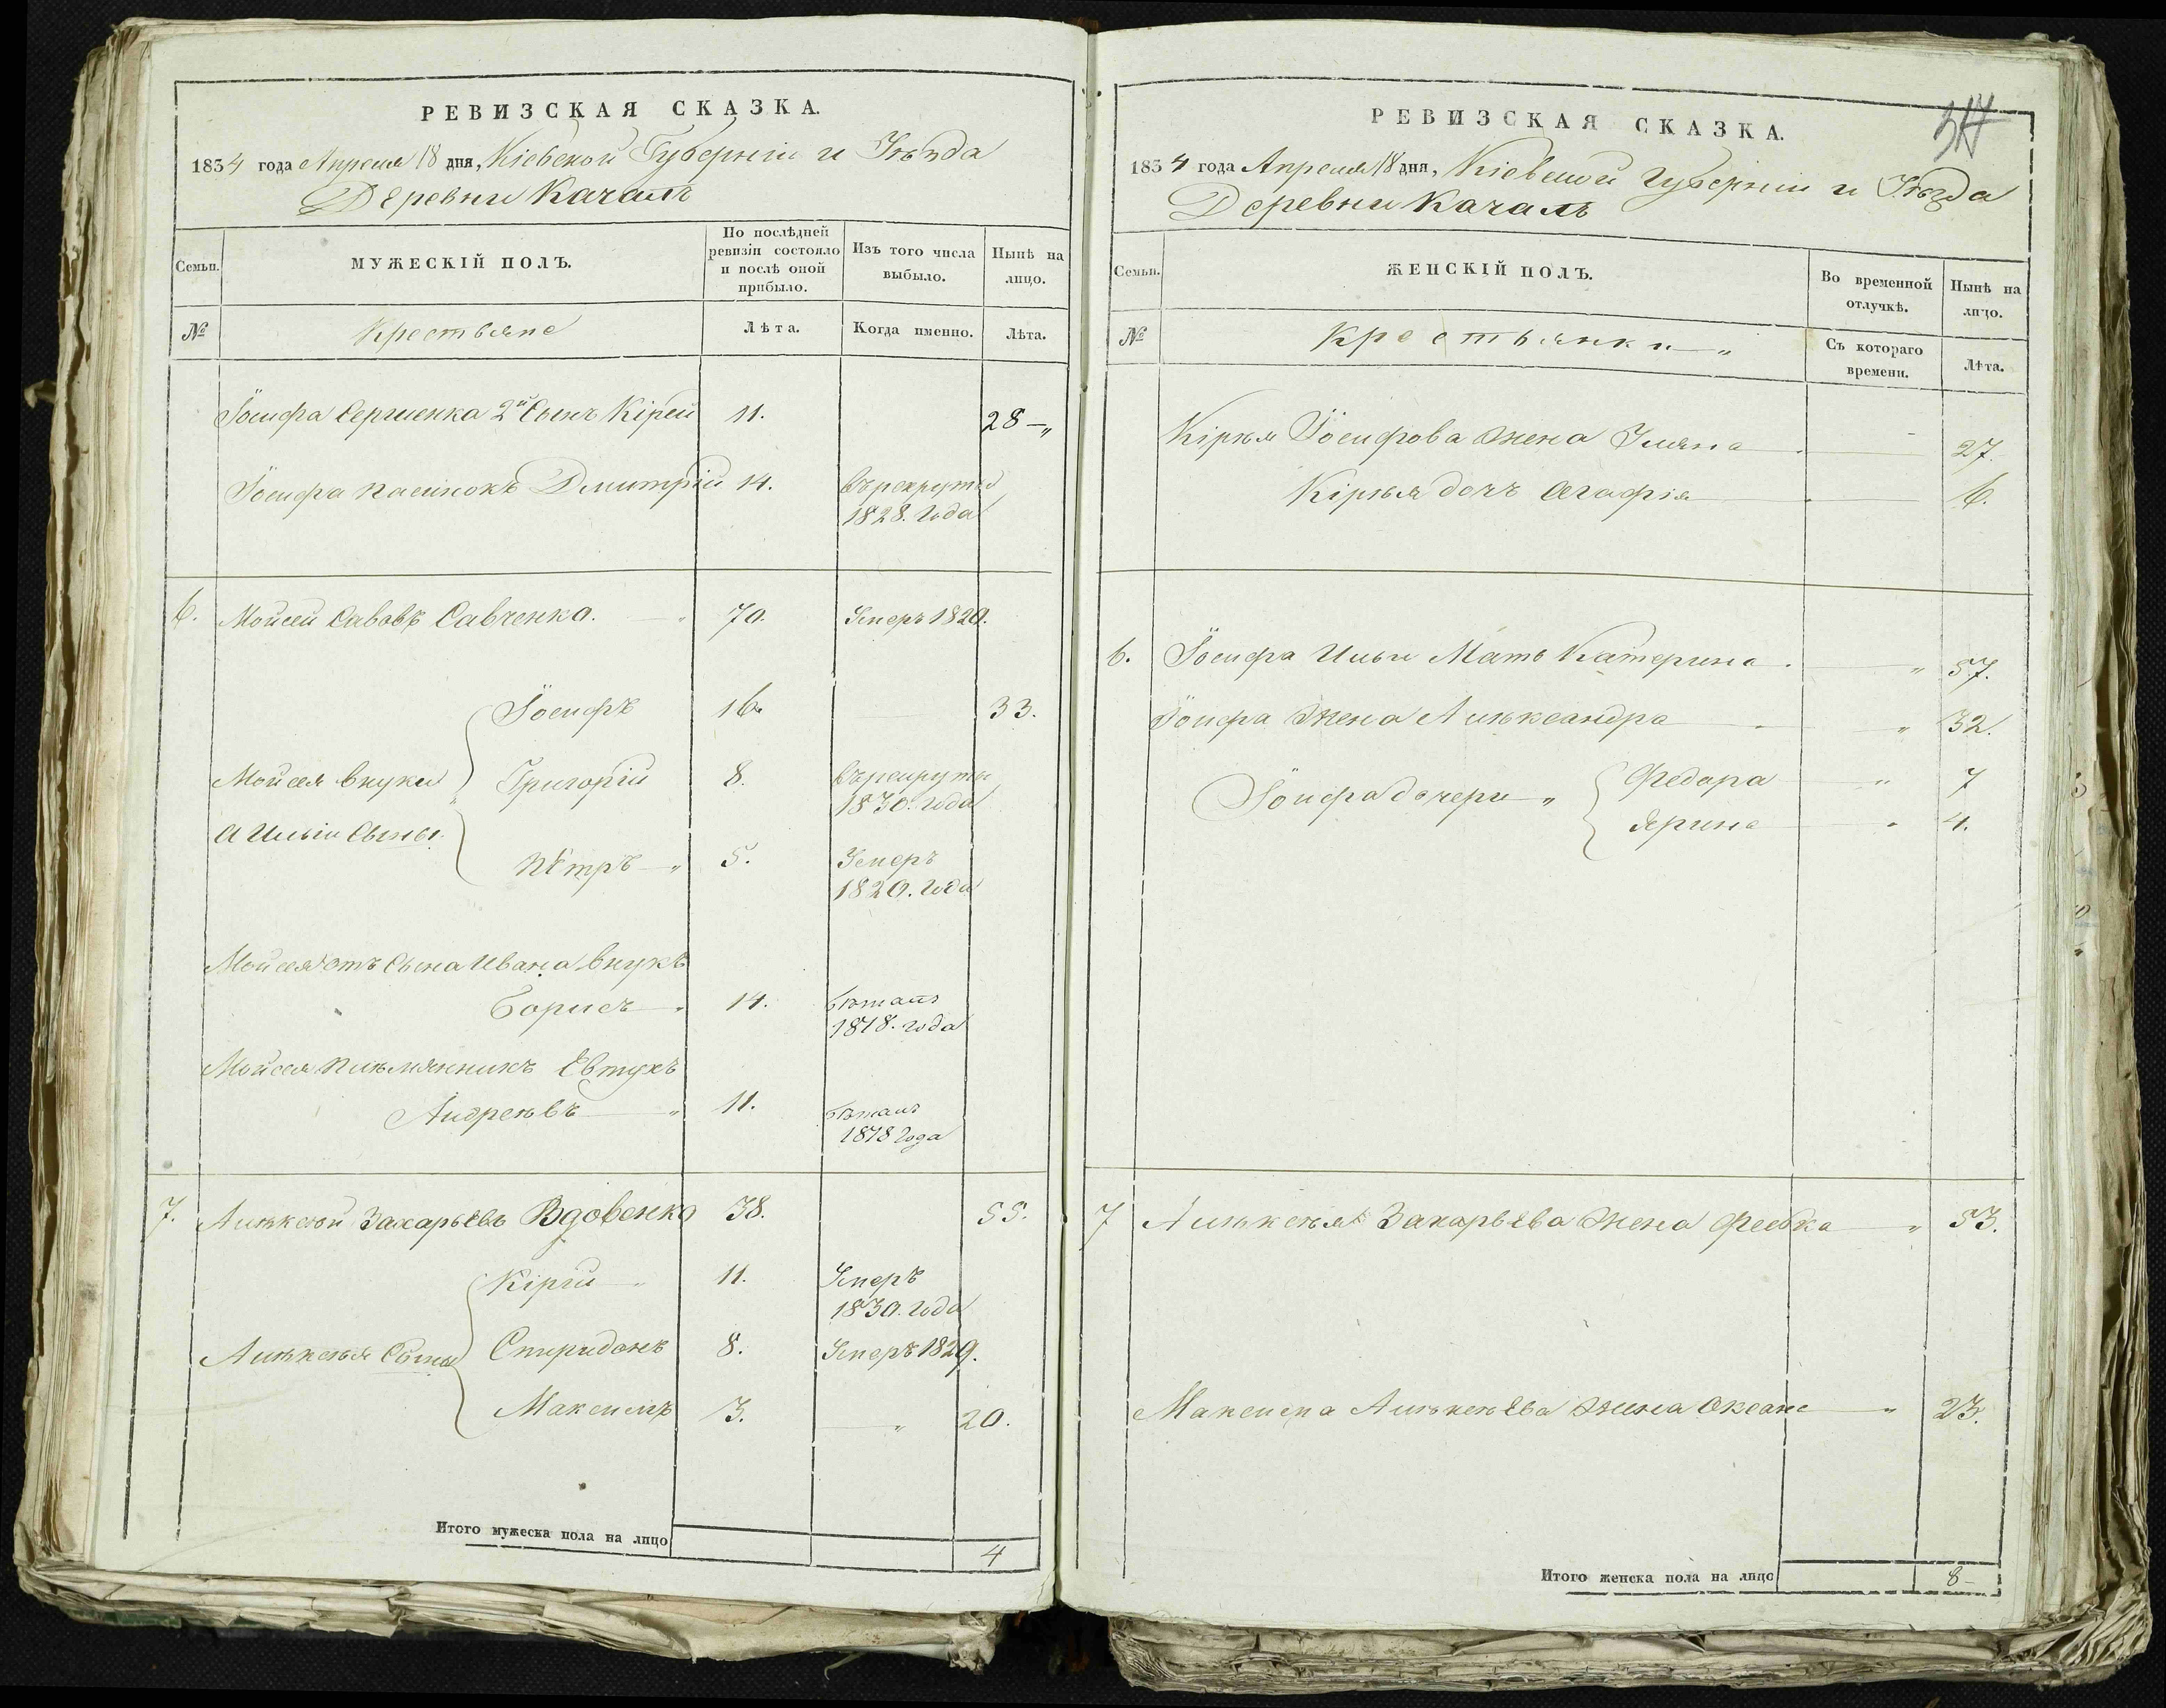 РЕВИЗСКАЯ СКАЗКА.
1834 года Апреля 18 дня, Кіевской Губерніи и Уѣзда
Деревни Качалъ
Семьи.
МУЖЕСКІЙ ПОЛЪ.
По послѣдней ревизіи состояло и послѣ оной прибыло.
Изъ того числа выбыло.
Нынѣ на лицо.
№
Крестьяне
Лѣта.
Когда именно.
Лѣта.
Іосифа Сергиенка 2й Сынъ Кірей 11. 28 —„
Іосифа пасинокъ Дмитрій 14. Въ рекруты
1828. Года
6. Мойсей Савовъ Савченко. 70. Умеръ 1820.
Іосифъ 16. 33.
Мойсея внуки Григорій 8. Въ рекруты
1830. года
А Ильіи Сыны.
Пѣтръ — „ 5. Умеръ
1820. Года
Мойсея отъ Сына Ивана Внукъ
Борисъ — „ 14. Бѣжалъ
1818. года
Мойсея племянникъ Евтухъ
Андреѣвъ — „ 11. Бѣжалъ
1818 Года
7. Алѣксѣй Захарьевъ Вдовенко 38. 55.
Кірій — „ 11. Умеръ
1830. Года
Алѣксѣя Сыны Спиридонъ 8. Умеръ 1829.
Максимъ 3. — „ 20.
Итого мужеска пола на лицо 4
РЕВИЗСКАЯ СКАЗКА.
1834 года Апреля 18 дня, Кіевской Губерніи и Уѣзда
Деревни Качалъ
Семьи.
ЖЕНСКІЙ ПОЛЪ.
Во временной отлучкѣ.
Нынѣ на лицо.
№
Крестьянки — „
Съ котораго времени.
Лѣта.
Кірѣя Іосифова Жена Уляна 27.
Кірѣя дочъ Агафія 6.
6. Іосифа Ильи Мать Катерина. — „ 57.
Іоифа Жена Алѣксандра — „ 32.
Іоифа дочери „ Федора — „ 7
Ярина — „ 4.
7 Алѣксѣя Захарьева Жена Февка — „ 53.
Максима Алѣксѣева Жена Оксана — „ 23.
Итого женска пола на лицо 8 –